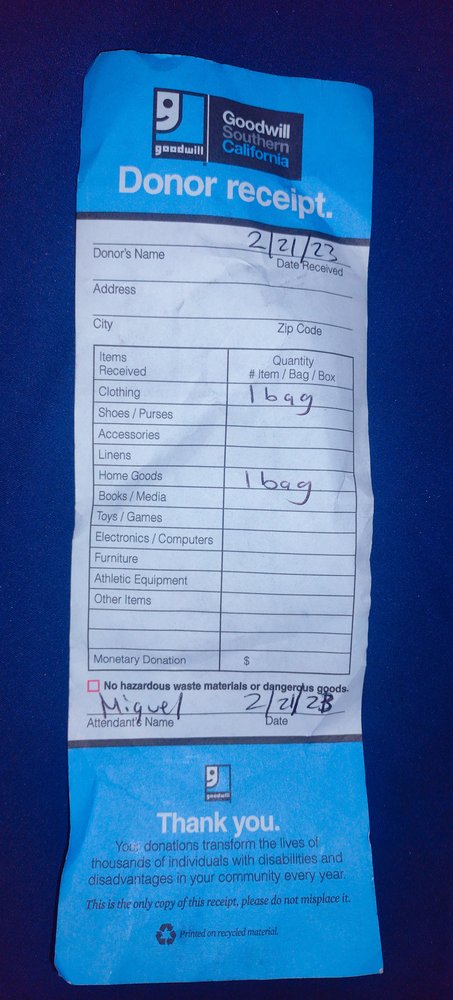 goodwill
Goodwill
Southern
California
Donor receipt.
2/21/23
Donor's Name Date Received
Address
City Zip Code
Items Received Quantity # Item / Bag / Box
Clothing 1 bag
Shoes / Purses
Accessories
Linens
Home Goods 1 bag
Books / Media
Toys / Games
Electronics / Computers
Furniture
Athletic Equipment
Other Items
Monetary Donation $
No hazardous waste materials or dangerous goods.
Miguel 2/21/23
Attendant's Name Date
goodwill
Thank you.
Your donations transform the lives of
thousands of individuals with disabilities and
disadvantages in your community every year.
This is the only copy of this receipt, please do not misplace it.
Printed on recycled material.